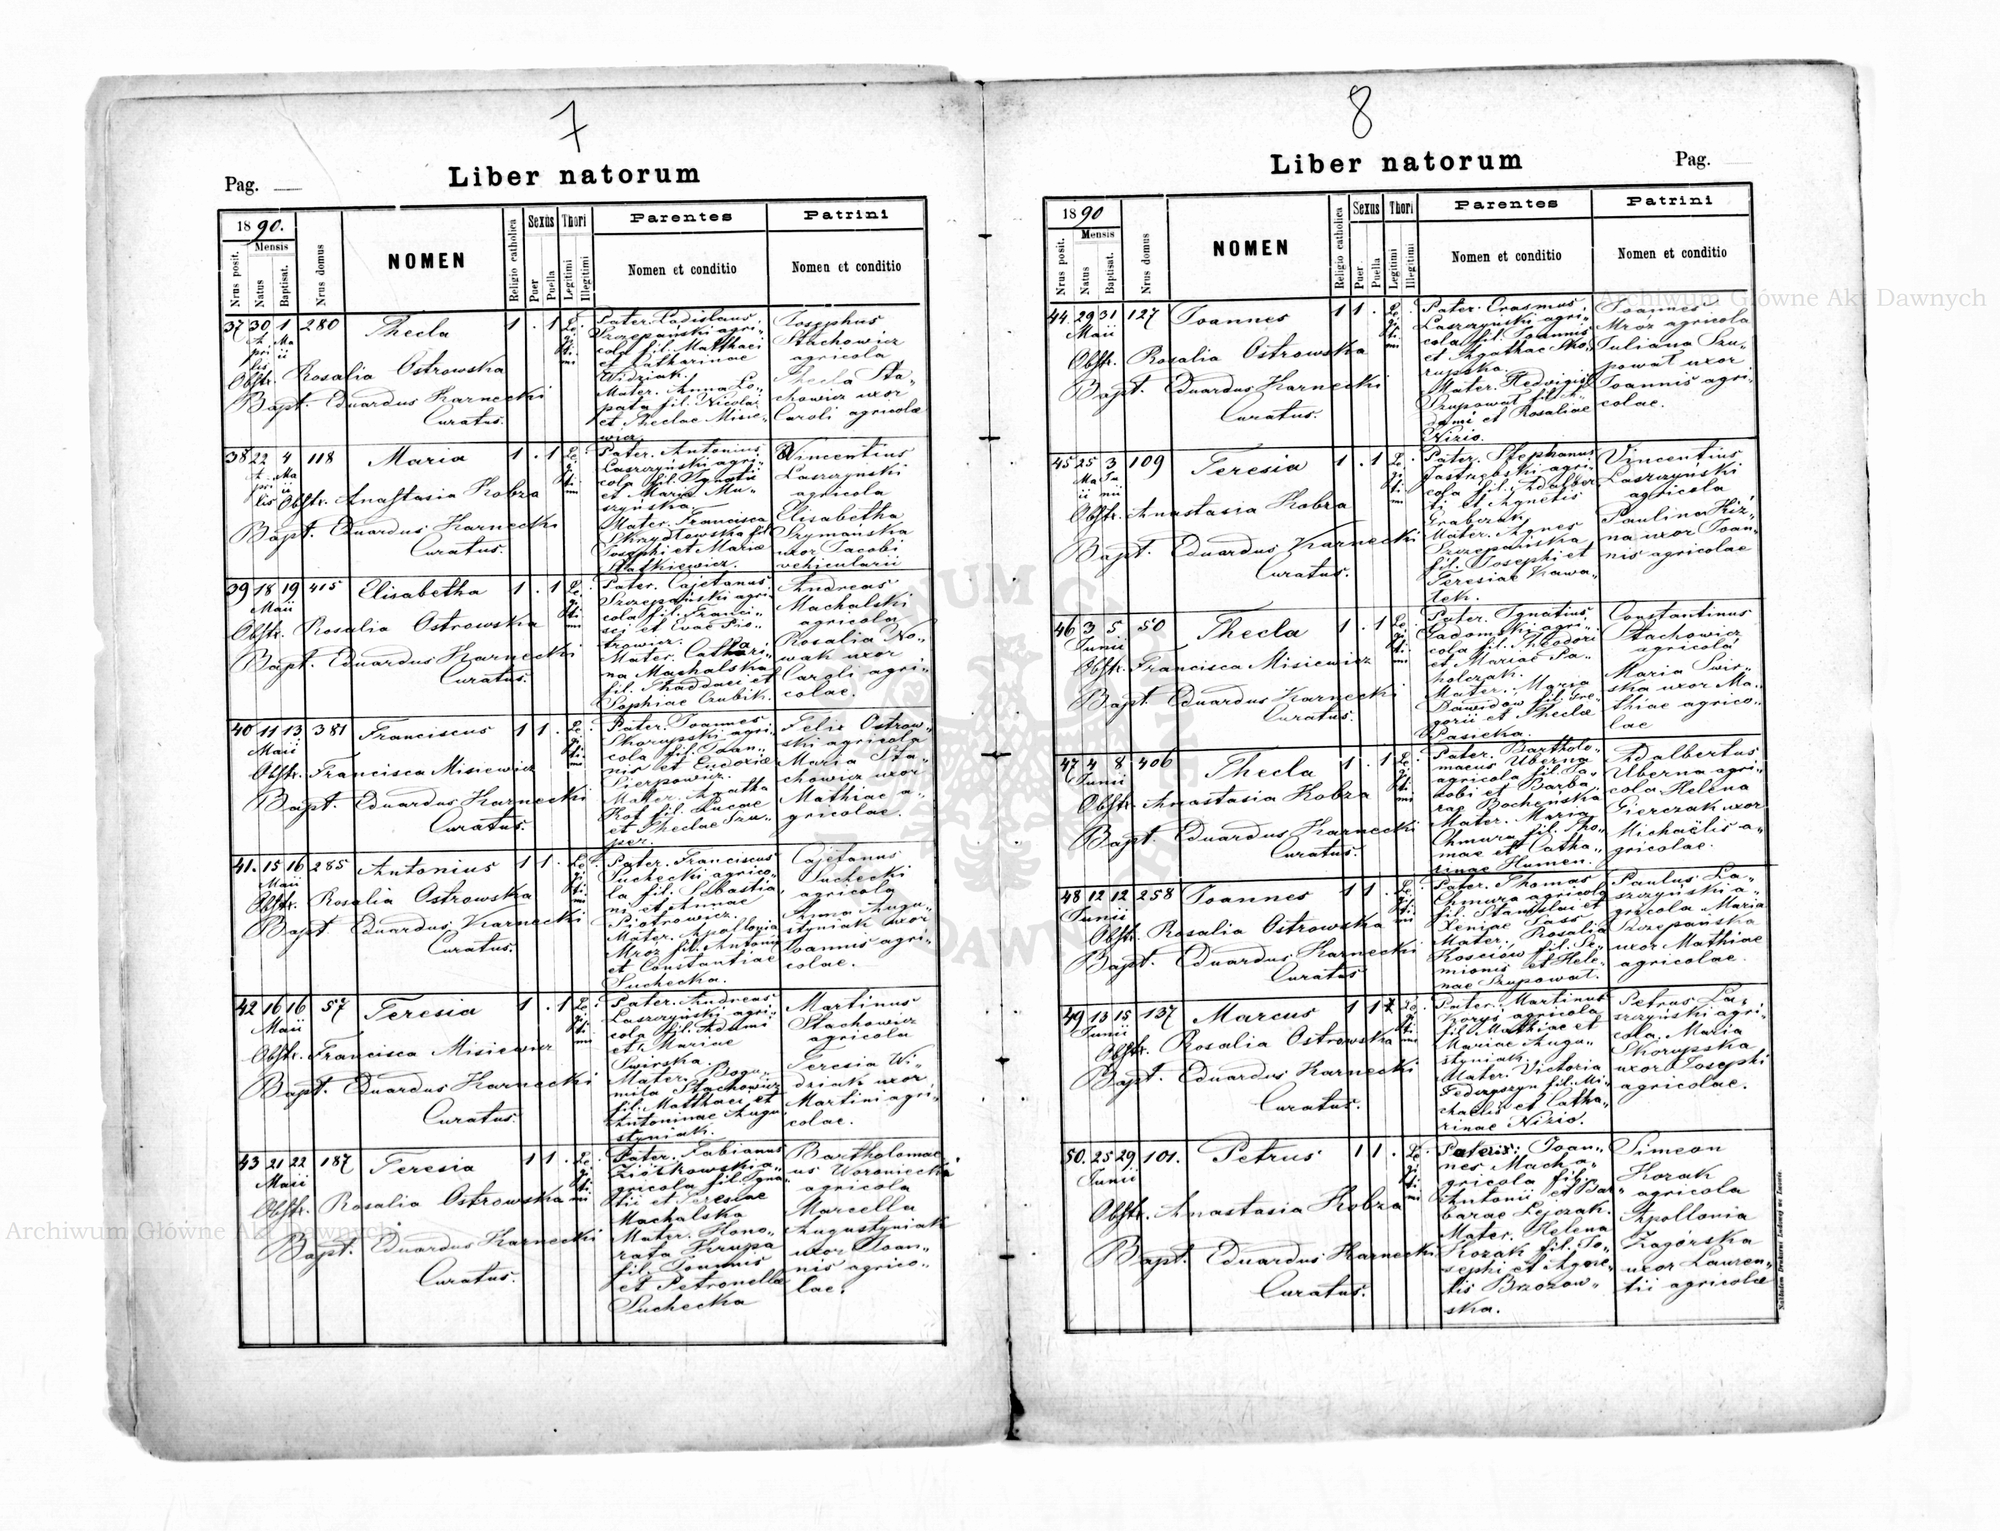 7
Pag.
Liber natorum
1890.
Mensis
Nrus posit.
Natus
Baptisat.
Nrus domus
NOMEN
Religio catholica
Sexus
Puer
Puella
Thori
Legitimi
Illegitimi
Parentes
Nomen et conditio
Patrini
Nomen et conditio
37 30 1 280 Thecla 1 . 1 Le-
A- Ma gi
pri ii ti
lis mi
Obstr. Rosalia Ostrowska
Bapt. Eduardus Karnecki
Curatus.
Pater. Ladislaus
Szczepański agri-
cola fil. Matthaei
et Catharinae
Widziak.
Mater. Anna Lo-
pata fil. Nicolai
et Theclae Misie-
wicz.
Josephus
Stachowicz
agricola
Thecla Sta-
chowicz uxor
Caroli agricolae
38 22 4 118 Maria 1 . 1 Le-
A- Ma gi
pri ii ti
lis mi
Obstr. Anastasia Kobza
Bapt. Eduardus Karnecki
Curatus.
Pater. Antonius
Laszczyński agri-
cola fil. Ignatii
et Mariae Mu-
szyńska.
Mater. Francisca
Skrzydłowska fil.
Josephi et Mariae
Statkiewicz.
Vincentius
Laszczyński
agricola
Elisabetha
Szymańska
uxor Jacobi
vehicularii
39 18 19 415 Elisabetha 1 . 1 Le-
Maii gi
ti
mi
Obstr. Rosalia Ostrowska
Bapt. Eduardus Karnecki
Curatus.
Pater. Cajetanus
Szczepański agri-
cola fil. Franci-
sci et Evae Pio-
trowicz.
Mater. Cathari-
na Machalska
fil. Thaddaei et
Sophiae Czubik.
Andreas
Machalski
agricola
Rosalia No-
wak uxor
Caroli agri-
colae.
40 11 13 381 Franciscus 1 1 . Le-
Maii gi
ti
mi
Obstr. Francisca Misiewicz
Bapt. Eduardus Karnecki
Curatus.
Pater. Joannes
Skorupski agri-
cola fil. Joan-
nis et Eudoxiae
Sierpowicz.
Mater. Agatha
Kot fil. Lucae
et Theclae Szu-
per.
Felix Ostrow-
ski agricola
Maria Sta-
chowicz uxor
Mathiae a-
gricolae.
41. 15 16 285 Antonius 1 1 . Le-
Maii gi
ti
mi
Obstr. Rosalia Ostrowska
Bapt. Eduardus Karnecki
Curatus.
Pater. Franciscus
Suchecki agrico-
la fil. Sebastia-
ni et Annae
Piotrowicz.
Mater. Apollonia
Mroz fil. Antonii
et Constantiae
Suchecka.
Cajetanus
Suchecki
agricola
Anna Augu-
styniak uxor
Joannis agri-
colae.
42 16 16 57 Teresia 1 . 1 Le-
Maii gi
ti
mi
Obstr. Francisca Misiewicz
Bapt. Eduardus Karnecki
Curatus.
Pater. Andreas
Laszczyński agri-
cola fil. Adami
et Mariae
Swirska.
Mater. Bogu-
mila Stachowicz
fil. Matthaei et
Antoninae Augu-
styniak.
Martinus
Stachowicz
agricola
Teresia Wi-
dziak uxor
Martini agri-
colae.
43 21 22 187 Teresia 1 1 . Le-
Maii gi
ti
mi
Obstr. Rosalia Ostrowska
Bapt. Eduardus Karnecki
Curatus.
Pater. Fabianus
Ziółkowski a-
gricola fil. Igna-
tii et Teresiae
Machalska
Mater. Hono-
rata Krupa
fil. Joannis
et Petronellae
Suchecka
Bartholomae
us Woroniecki
agricola
Marcella
Augustyniak
uxor Joan-
nis agrico-
lae.
8
Liber natorum
Pag.
1890
Mensis
Nrus posit.
Natus
Baptisat.
Nrus domus
NOMEN
Religio catholica
Sexus
Puer
Puella
Thori
Legitimi
Illegitimi
Parentes
Nomen et conditio
Patrini
Nomen et conditio
44. 29 31 127 Joannes 1 1 . Le-
Maii gi
ti
mi
Obstr. Rosalia Ostrowska
Bapt. Eduardus Karnecki
Curatus.
Pater. Erasmus
Laszczyński agri-
cola fil. Joannis
et Agathae Sko-
rupska.
Mater. Hedvigis
Szupowat fil. A-
dami et Rosaliae
Nizio.
Joannes
Mroz agricola
Juliana Szu-
powat uxor
Joannis agri-
colae.
45 25 3 109 Teresia 1 . 1 Le-
Ma Ju gi
ii nii ti
mi
Obstr. Anastasia Kobza
Bapt. Eduardus Karnecki
Curatus.
Pater. Stephanus
Jastrzebski agri-
cola fil. Adalber
ti et Agnetis
Grabczak.
Mater. Agnes
Szczepańska
fil. Josephi et
Teresiae Kawa-
lek.
Vincentius
Laszczyński
agricola
Paulina Kiź-
na uxor Joan-
nis agricolae
46 3 5 50 Thecla 1 . 1 Le-
Junii gi
ti
mi
Obstr. Francisca Misiewicz
Bapt. Eduardus Karnecki
Curatus.
Pater. Ignatius
Gadomski agri-
cola fil. Theodori
et Mariae Pa-
holczak.
Mater. Maria
Bawidow fil. Gre-
gorii et Theclae
Pasieka.
Constantinus
Stachowicz
agricola
Maria Swir-
ska uxor Ma-
thiae agrico-
lae
47 4 8 406 Thecla 1 . 1 Le-
Junii gi
ti
mi
Obstr. Anastasia Kobza
Bapt. Eduardus Karnecki
Curatus.
Pater. Bartholo-
maeus Uberna
agricola fil. Ja-
cobi et Barba-
rae Bochenska
Mater. Maria
Chmura fil. Tho-
mae et Catha-
rinae Humen.
Adalbertus
Uberna agri-
cola Helena
Gierczak uxor
Michaëlis a-
gricolae.
48 12 12 258 Joannes 1 1 . Le-
Junii gi
ti
mi
Obstr. Rosalia Ostrowska
Bapt. Eduardus Karnecki
Curatus
Pater. Thomas
Chmura agricola
fil. Stanislai et
Xeniae Sass
Mater. Rosalia
Kosciów fil. Se-
mionis et Hele-
nae Szupowat.
Paulus La-
szczyński a-
gricola Maria
Szczepańska
uxor Mathiae
agricolae.
49 13 15 137 Marcus 1 1 Le-
Junii gi
ti
mi
Obstr. Rosalia Ostrowska
Bapt. Eduardus Karnecki
Curatus.
Pater. Martinus
Koryś agricola
fil. Mathiae et
Mariae Augu-
styniak.
Mater. Victoria
Federyszyn fil. Mi-
chaelis et Catha-
rinae Nizio.
Petrus La-
szczyński agri-
cola. Maria
Skorupska
uxor Josephi
agricolae.
50. 25 29 101. Petrus 1 1 . Le-
Junii gi
ti
mi
Obstr. Anastasia Kobza
Bapt. Eduardus Karnecki
Curatus.
Joan-
nes Macha-
gricola fil.
Antonii et Bar-
barae Lejczak.
Mater. Helena
Kozak fil. Jo-
sephi et Agne-
tis Brzozow-
ska.
Simeon
Kozak
agricola
Apollonia
Zagórska
uxor Lauren-
tii agricolae
Nakładem Drukarni Ludowej we Lwowie.
Archiwum Główne Akt Dawnych
Archiwum Główne Akt Dawnych